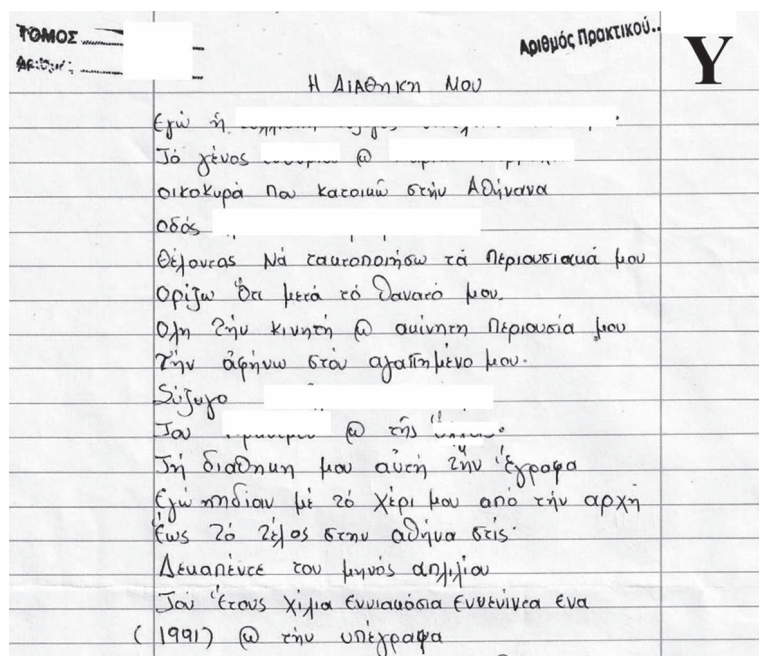 ΤΟΜΟΣ
Αριθμός Πρακτικού..
Υ
Η ΔΙΑΘΗΚΗ ΜΟΥ
Εγώ ή
Τό γένος @
οικοκυρά που κατοικώ στήν Αθήνανα
οδός
Θέλοντας Νά τακτοποιήσω τά Περιουσιακά μου
Ορίζω ὅτι μετά τό θανατό μου.
Ολη τήν κινητή @ ακίνητη Περιουσία μου
Τήν ἀφήνω στόν αγαπημένο μου.
Σύζυγο
Του @ τῆς
Τή διαθηκη μου αὐτή τήν ἔγραψα
Εγώ ηηδιαν μέ τό χέρι μου από τήν αρχή
Ἕως τό τέλος στην αθήνα στίς
Δεκαπέντε του μηνός απιλιου
Του Ἔτους χίλια εννιακόσια εννενίντα ενα
(1991) @ τήν υπέγραψα